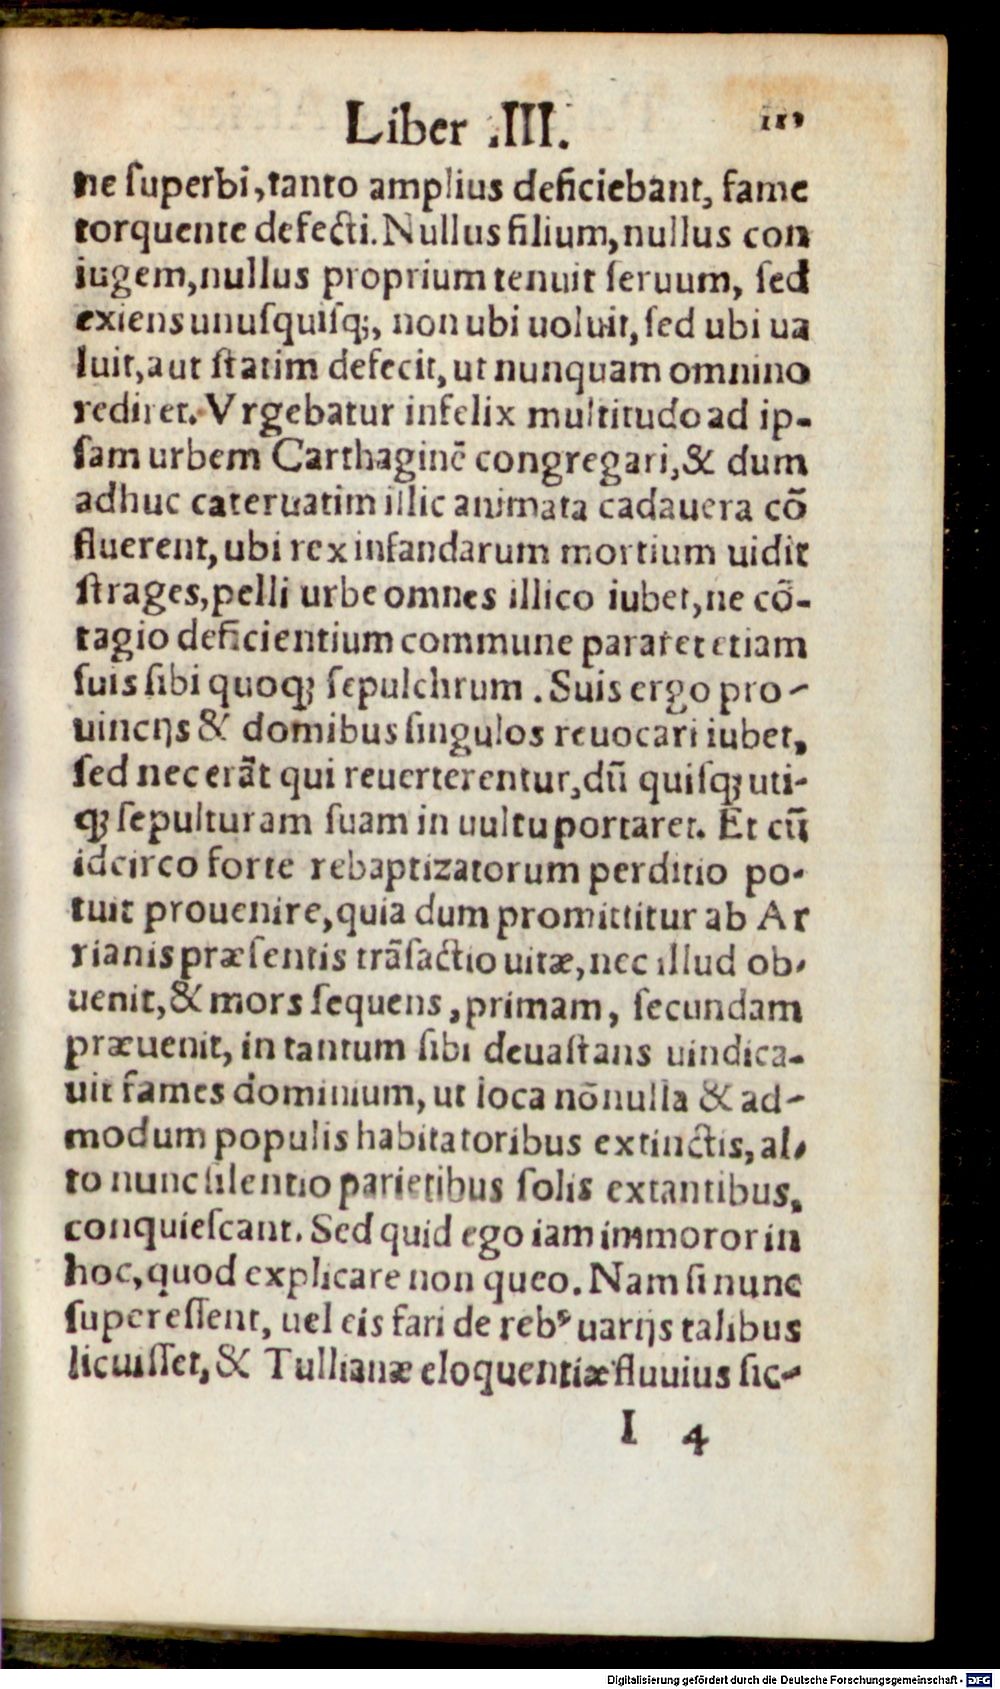 Liber .III.
ne superbi, tanto amplius deficiebant, fame
torquente defecti. Nullus filium, nullus con
iugem, nullus proprium tenuit seruum, sed
exiens unusquisq;, non ubi uoluit, sed ubi ua
luit, aut statim defecit, ut nunquam omnino
rediret. Vrgebatur infelix multitudo ad ip-
sam urbem Carthaginē congregari, & dum
adhuc cateruatim illic animata cadauera cō
fluerent, ubi rex infandarum mortium uidit
strages, pelli urbe omnes illico iubet, ne cō-
tagio deficientium commune pararet etiam
suis sibi quoq; sepulchrum. Suis ergo pro-
uincijs & domibus singulos reuocari iubet,
sed nec erāt qui reuerterentur, dū quisq; uti-
q; sepulturam suam in uultu portaret. Et cū
idcirco forte rebaptizatorum perditio po-
tuit prouenire, quia dum promittitur ab Ar
rianis præsentis trāsactio uitæ, nec illud ob-
uenit, & mors sequens, primam, secundam
præuenit, in tantum sibi deuastans uindica-
uit fames dominium, ut loca nōnulla & ad-
modum populis habitatoribus extinctis, al-
to nunc silentio parietibus solis extantibus,
conquiescant. Sed quid ego iam immoror in
hoc, quod explicare non queo. Nam si nunc
superessent, uel eis fari de rebꝰ uarijs talibus
licuisset, & Tullianæ eloquentiæ fluuius sic-
I 4
Digitalisierung gefördert durch die Deutsche Forschungsgemeinschaft - DFG